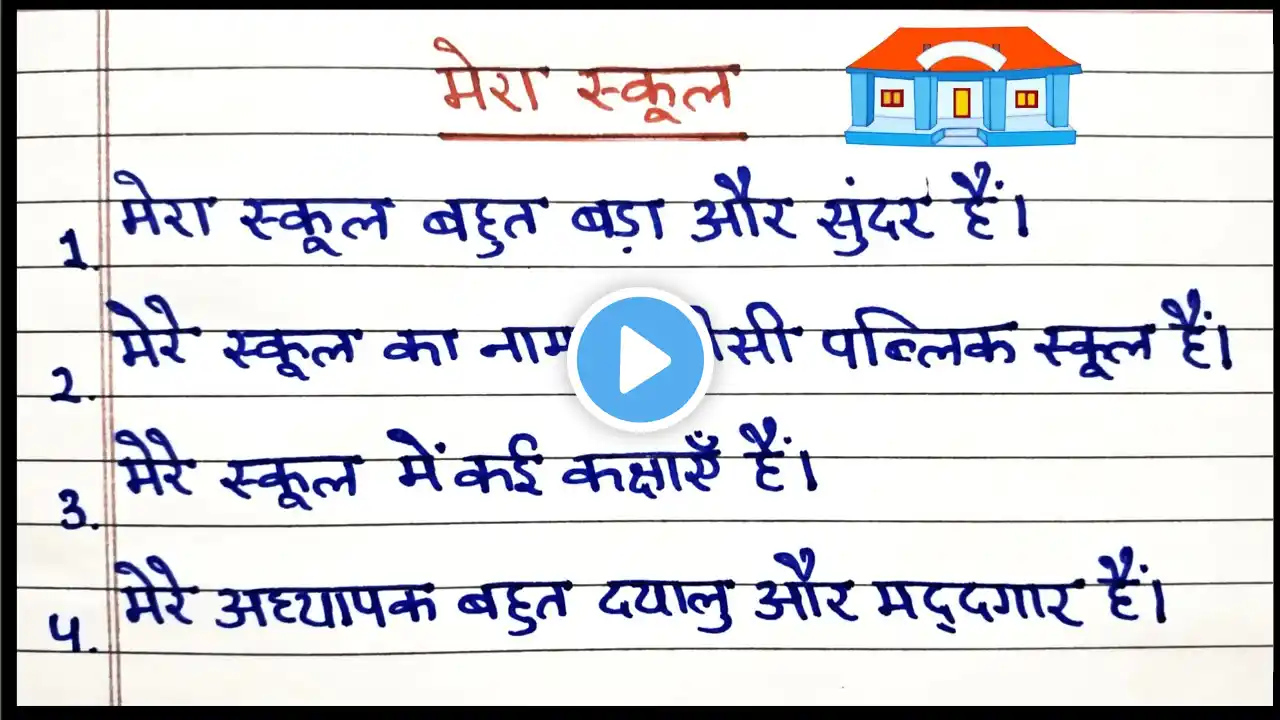 मेरा स्कूल
1. मेरा स्कूल बहुत बड़ा और सुंदर हैं।
2. मेरे स्कूल का नाम पब्लिक स्कूल हैं।
3. मेरे स्कूल में कई कक्षाएँ हैं।
4. मेरे अध्यापक बहुत दयालु और मद्दगार हैं।